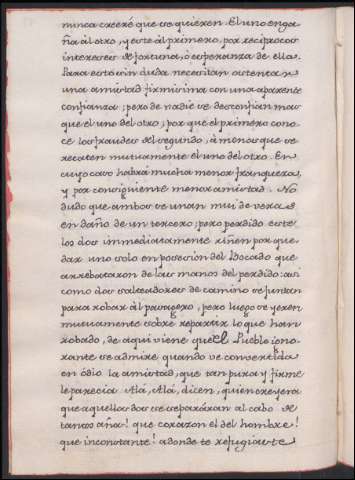 nunca creeré que se quieren. El uno enga-
ña al otro, y este al primero, por reciprocos
intereses de fortuna, ó esperanza de ella.
Para esto sin duda necesitan ostentar
una amistad firmisima con una aparente
confianza; pero de nadie se desconfian mas
que el uno del otro; por que el primero cono-
ce los fraudes del segundo, á menos que se
recaten mutuamente el uno del otro. En
cuyo caso habrá mucha menor franqueza,
y por consiguiente menor amistad. No
dudo que ambos se unan mui de veras
en daño de un tercero; pero perdido este
los dos immediatamente riñen por que-
dar uno solo en posesion del bocado que
arrebataron de las manos del perdido: asi
como dos salteadores de camino se juntan
para robar al pasagero, pero luego se yeren
mutuamente sobre repartir lo que han
robado, de aqui viene que el Pueblo igno-
rante se admire quando ve convertida
en ódio la amistad, que tan pura y firme
le parecia Alá, Alá, dicen, quien creyera
que aquellos dos se separáran al cabo de
tantos años! que corazon el del hombre!
que inconstante! adonde te refugiaste